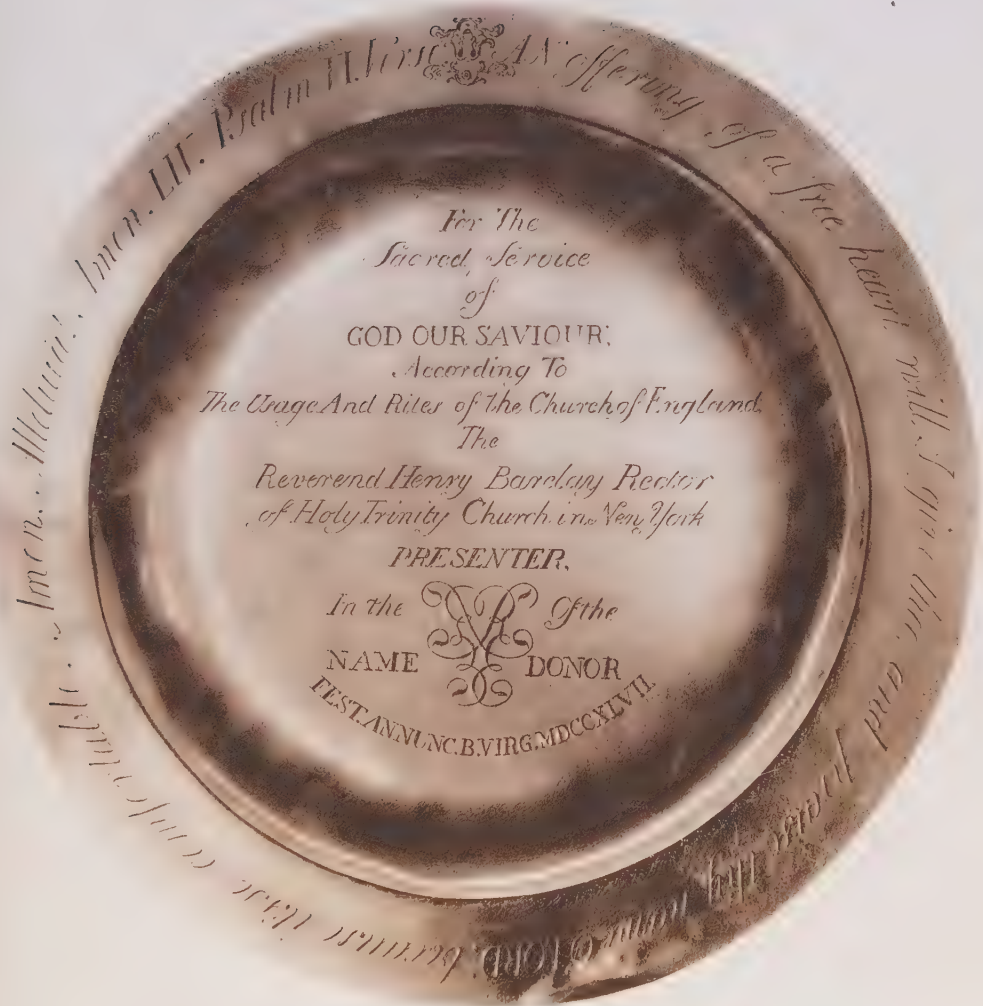 AN offering of a free heart will I give thee, and praise thy name O LORD: because it is so comfortable. Amen. Alleluia! Amen. LIV. Psalm VI. Verse
For The
Sacred Service
of
GOD OUR SAVIOUR;
According To
The Usage And Rites of the Church of England,
The
Reverend Henry Barclay Rector
of Holy Trinity Church in New York
PRESENTER.
In the Of the
NAME DONOR
FEST.ANNUNC.B.VIRG.MDCCXLVII.